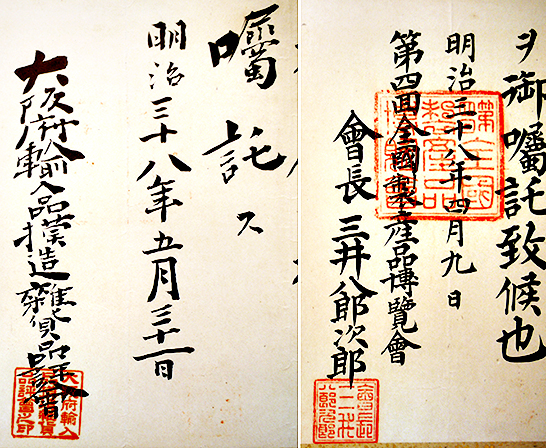 囑託ス
明治三十八年五月三十一日
大阪府輸入品摸造雜貨品評會
ヲ御囑託致候也
明治三十八年四月九日
第四回全國製産品博覽會
會長 三井八郎次郎